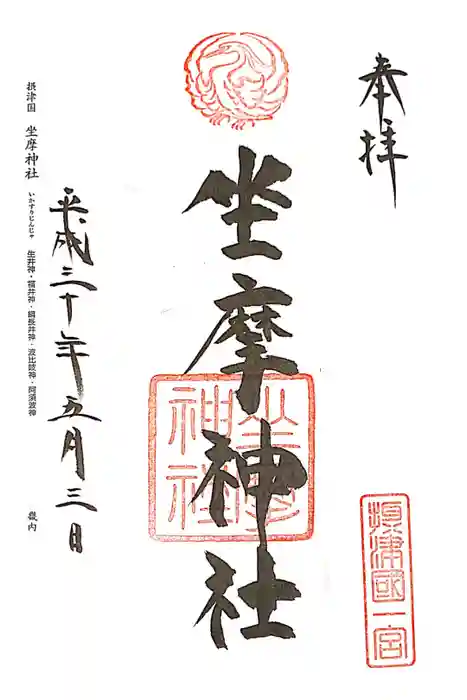 奉拝
摂津國一宮
坐摩神社
坐摩神社
平成三十年五月三日
摂津国 坐摩神社 いかすりじんじゃ 生井神・福井神・綱長井神・波比岐神・阿須波神 畿内